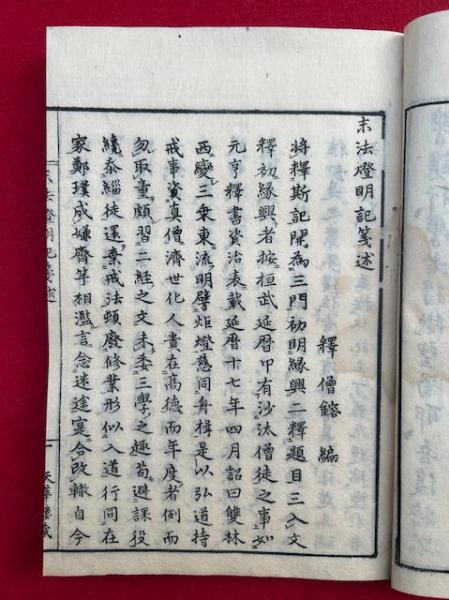 末法燈明記箋述
釋僧鎔 編
將釋斯記開為三門初明縁興二釋題目三入文
釋初縁興者按桓武延暦中有沙汰僧徒之事如
元亨釋書資治表載延暦十七年四月詔曰雙林
西變三乗東流明譬炬燈慈同舟楫是以弘道持
戒事資真僧濟世化人貴在高德而年度者例而
忽取童頗習二經之文未委三學之趣苟避課役
纔忝緇徒還棄戒法頓廢修業形似入道行同在
家鄭璞成嫌齊竽相濫言念迷途寔合改轍自今
末法燈明記箋述